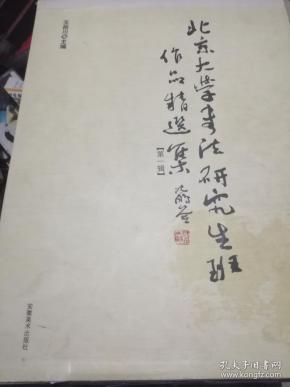 北京大学书法研究生班
作品精选集
【第一辑】
王岳川◎主编
安徽美术出版社
孔夫子旧书网